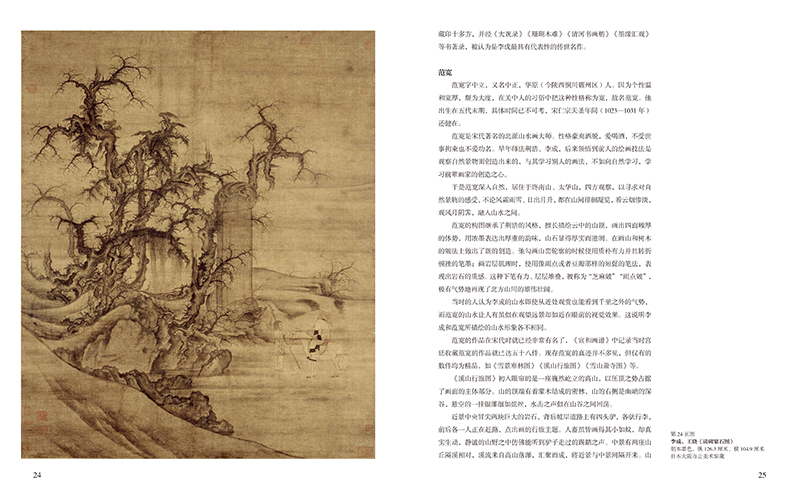 藏印十多方,并经《大观录》《珊瑚木难》《清河书画舫》《墨缘汇观》
等书著录,被认为是李成最具有代表性的传世名作。
范宽
范宽字中立,又名中正,华原(今陕西铜川耀州区)人。因为个性温
和宽厚,颇为大度,在关中人的习俗中把这种性格称为宽,故名范宽。他
出生在五代末期,具体时间已不可考,宋仁宗天圣年间(1023—1031 年)
还健在。
范宽是宋代著名的北派山水画大师。性格豪爽洒脱,爱喝酒,不受世
事拘束也不爱功名。早年师法荆浩、李成,后来领悟到前人的绘画技法是
观察自然景物而创造出来的,与其学习别人的画法,不如向自然学习,学
习前辈画家的创造之心。
于是范宽深入自然,居住于终南山、太华山,四方观察,以寻求对自
然景物的感受,不论风霜雨雪、日出月升,都在山间徘徊凝览,看云烟惨淡,
观风月阴霁,融入山水之间。
范宽的构图继承了荆浩的风格,擅长描绘云中的山顶,画出四面峻厚
的体势,用浓墨表达出厚重的韵味,山石显得厚实而进润。在画山和树木
的皴法上做出了新的创造。他勾画山峦轮廓的时候使用质朴有力并且转折
顿挫的笔墨;画岩层肌理时,使用像雨点或者豆瓣那样的短促的笔法,表
现出岩石的质感。这种下笔有力、层层堆叠,被称为“芝麻皴”“雨点皴”,
极有气势地再现了北方山川的雄伟壮阔。
当时的人认为李成的山水即使从近处观赏也能看到千里之外的气势,
而范宽的山水让人有虽似在观望远景却如近在眼前的视觉效果。这说明李
成和范宽所描绘的山水形象各不相同。
范宽的作品在宋代时就已经非常有名了,《宣和画谱》中记录当时宫
廷收藏范宽的作品就已达五十八件。现存范宽的真迹并不多见,但仅有的
数件均为精品,如《雪景寒林图》《溪山行旅图》《雪山萧寺图》等。
《溪山行旅图》初入眼帘的是一座巍然屹立的高山,以压顶之势占据
了画面的主体部分。山的顶端有着灌木结成的密林,山的右侧是幽峭的深
谷,悬空的一挂银瀑细如弦丝,水击之声似在山谷之间回荡。
近景中央冒尖两块巨大的岩石,背后坡岸道路上有四头驴,各驮行李,
前后各一人正在赶路,点出画的行旅主题。人畜虽皆画得其小如蚁,却真
实生动,静谧的山野之中仿佛能听到驴子走过的踢踏之声。中景有两座山
丘隔溪相对,溪流来自高山落瀑,汇聚而成,将近景与中景间隔开来。山
第 24 页图
李成、王晓《读碑窠石图》
绢本墨色,纵 126.3 厘米、横 104.9 厘米
日本大阪市立美术馆藏
24
25